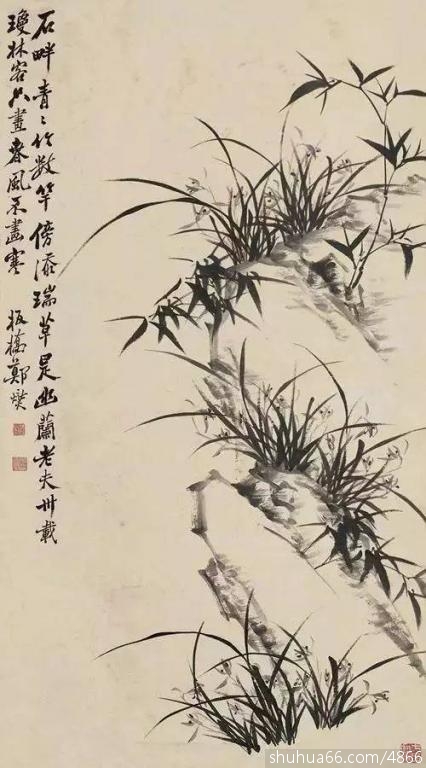 石畔青〻竹数竿傍添瑞草是幽蘭老夫卅載
瓊林客只畫春風不畫寒
板橋鄭燮
shuhua66.com/4866